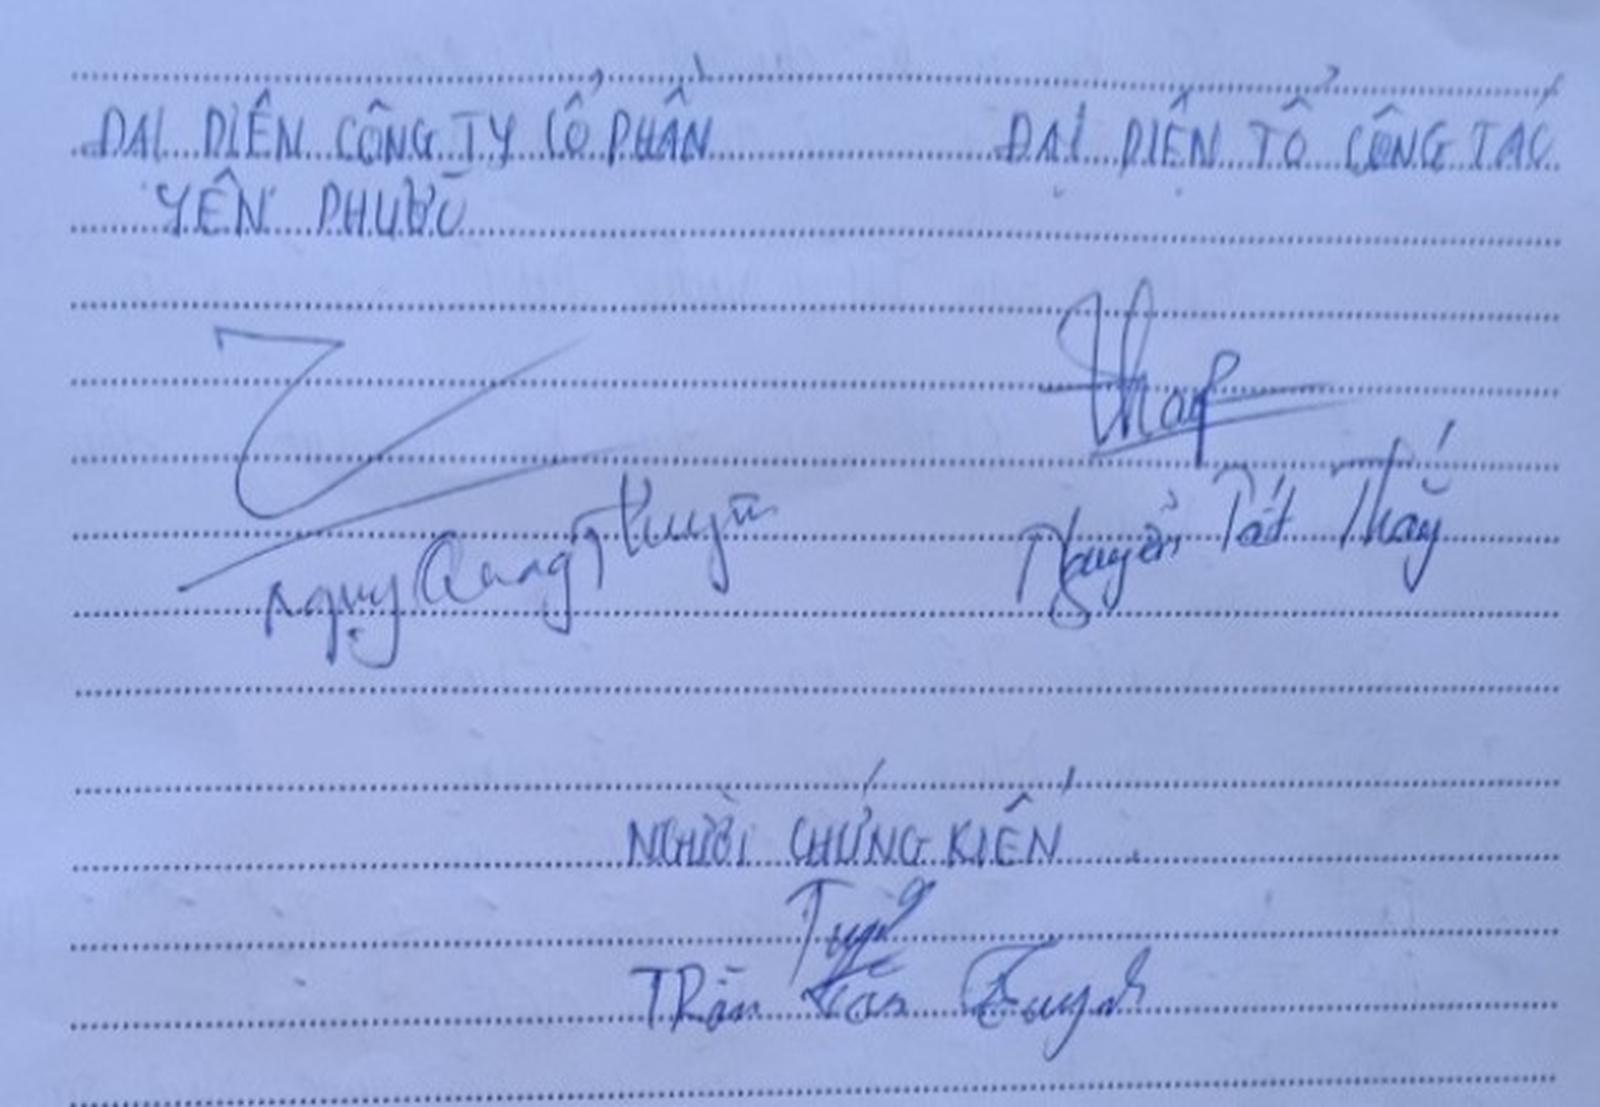 ĐẠI DIỆN CÔNG TY CỔ PHẦN
YÊN PHƯỚC
ĐẠI DIỆN TỔ CÔNG TÁC
Ngụy Quang Thuyên
Nguyễn Tất Thắng
NGƯỜI CHỨNG KIẾN
Trần Văn